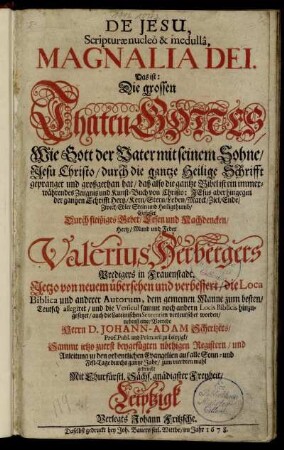 DE JESU,
Scripturæ nucleô & medullâ,
MAGNALIA DEI.
Das ist:
Die grossen
Thaten GOTTES
Wie Gott der Vater mit seinem Sohne/
Jesu Christo/ durch die gantze Heilige Schrifft
gepranget und großgethan hat/ daß also die gantze Bibel ist ein immer-
währendes Zeugnis und Kunst-Buch von Christo: JEsus aber hingegen
der gantzen Schrifft Hertz/ Kern/ Stern/ Leben/ Marck/ Ziel/ Ende/
Zweck/ Edler Stein und Heiligthum/
Durch fleißiges Gebet/ Lesen und Nachdencken/
Hertz/ Mund und Feder
Valerius Herbergers
Predigers in Frauenstadt,
Jetzo von neuem übersehen und verbessert/ die Loca
Biblica und anderer Autorum, dem gemeinen Manne zum besten/
Teutsch allegiret/ und die Versicul sammt noch andern Locis Biblicis hinzu-
gesetzt/ auch die Lateinischen
Herrn D. JOHANN-ADAM Schertzers/
Prof. Publ. und Primarii zu Leipzig/
Sammt itzo zuerst beygefügten nöthigen Registern/ und
Anleitung zu den ordentlichen Evangelien auf alle Sonn- und
Fest-Tage durchs gantze Jahr/
Mit Churfürstl. Sächs. gnädigster Freyheit/
Leipzigk
Verlegts Johann Fritzsche.
Daselbst gedruckt bey Joh.
im Jahr 1678.